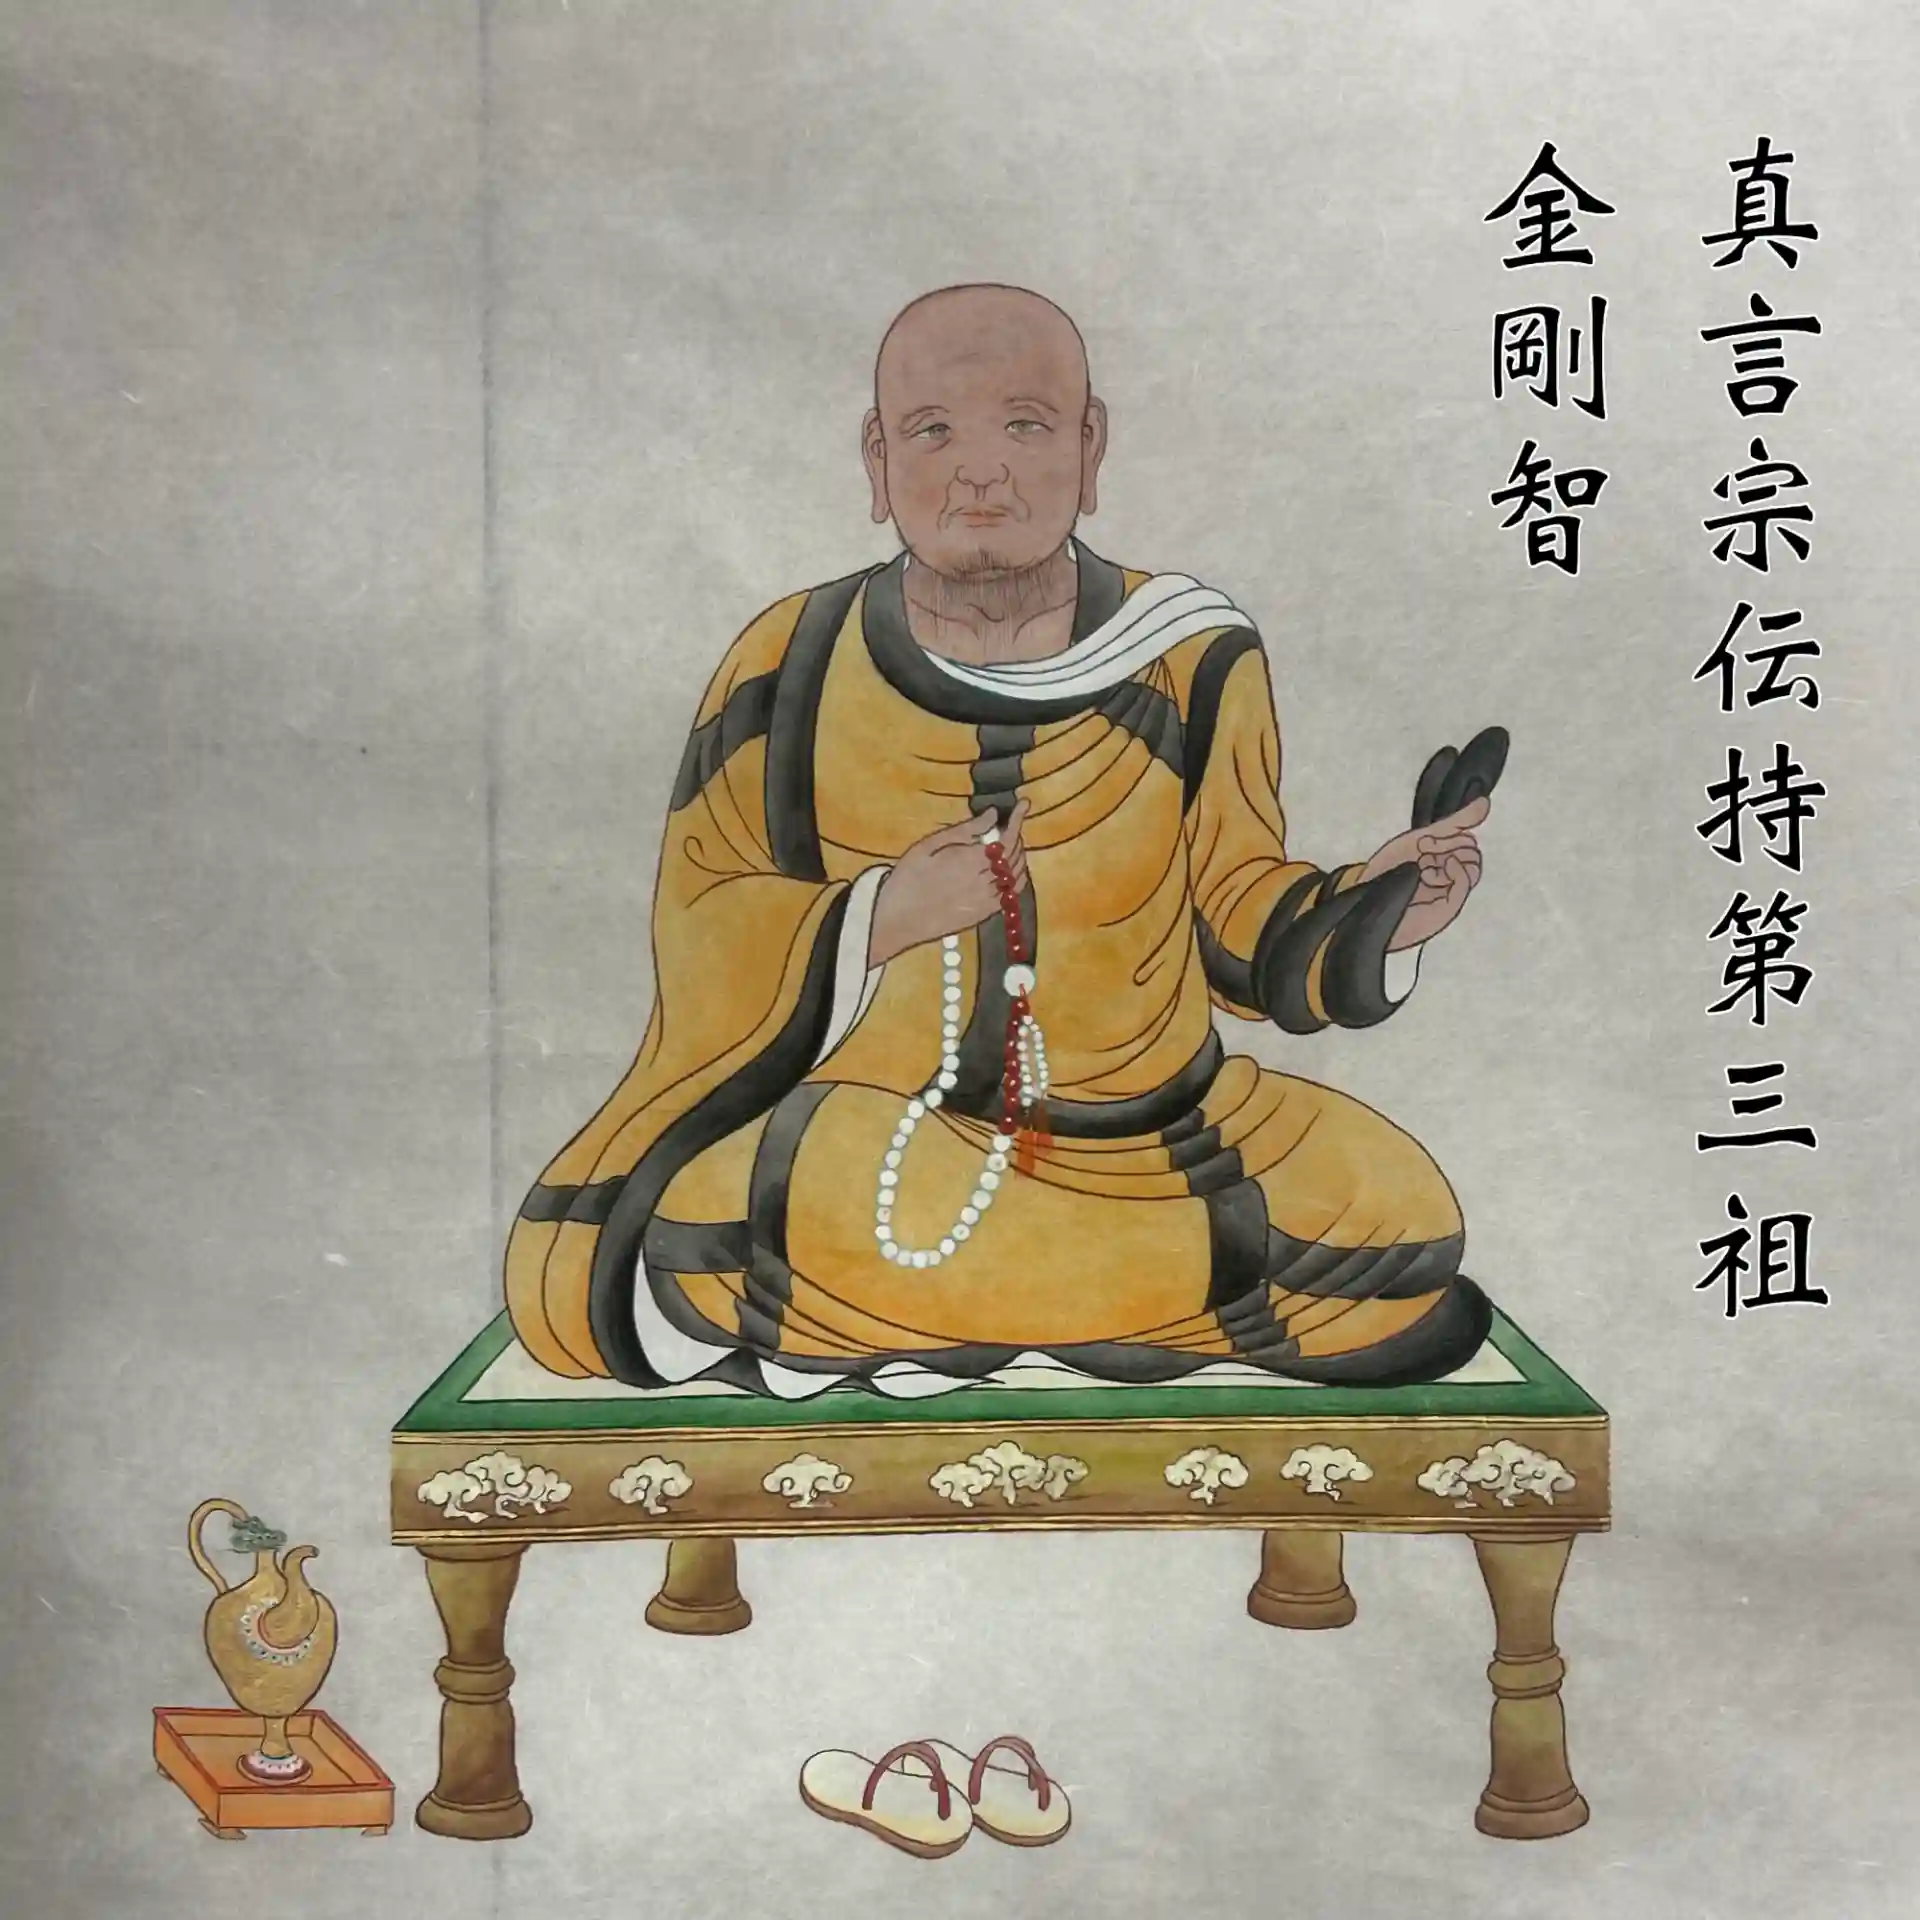 真言宗伝持第三祖
金剛智